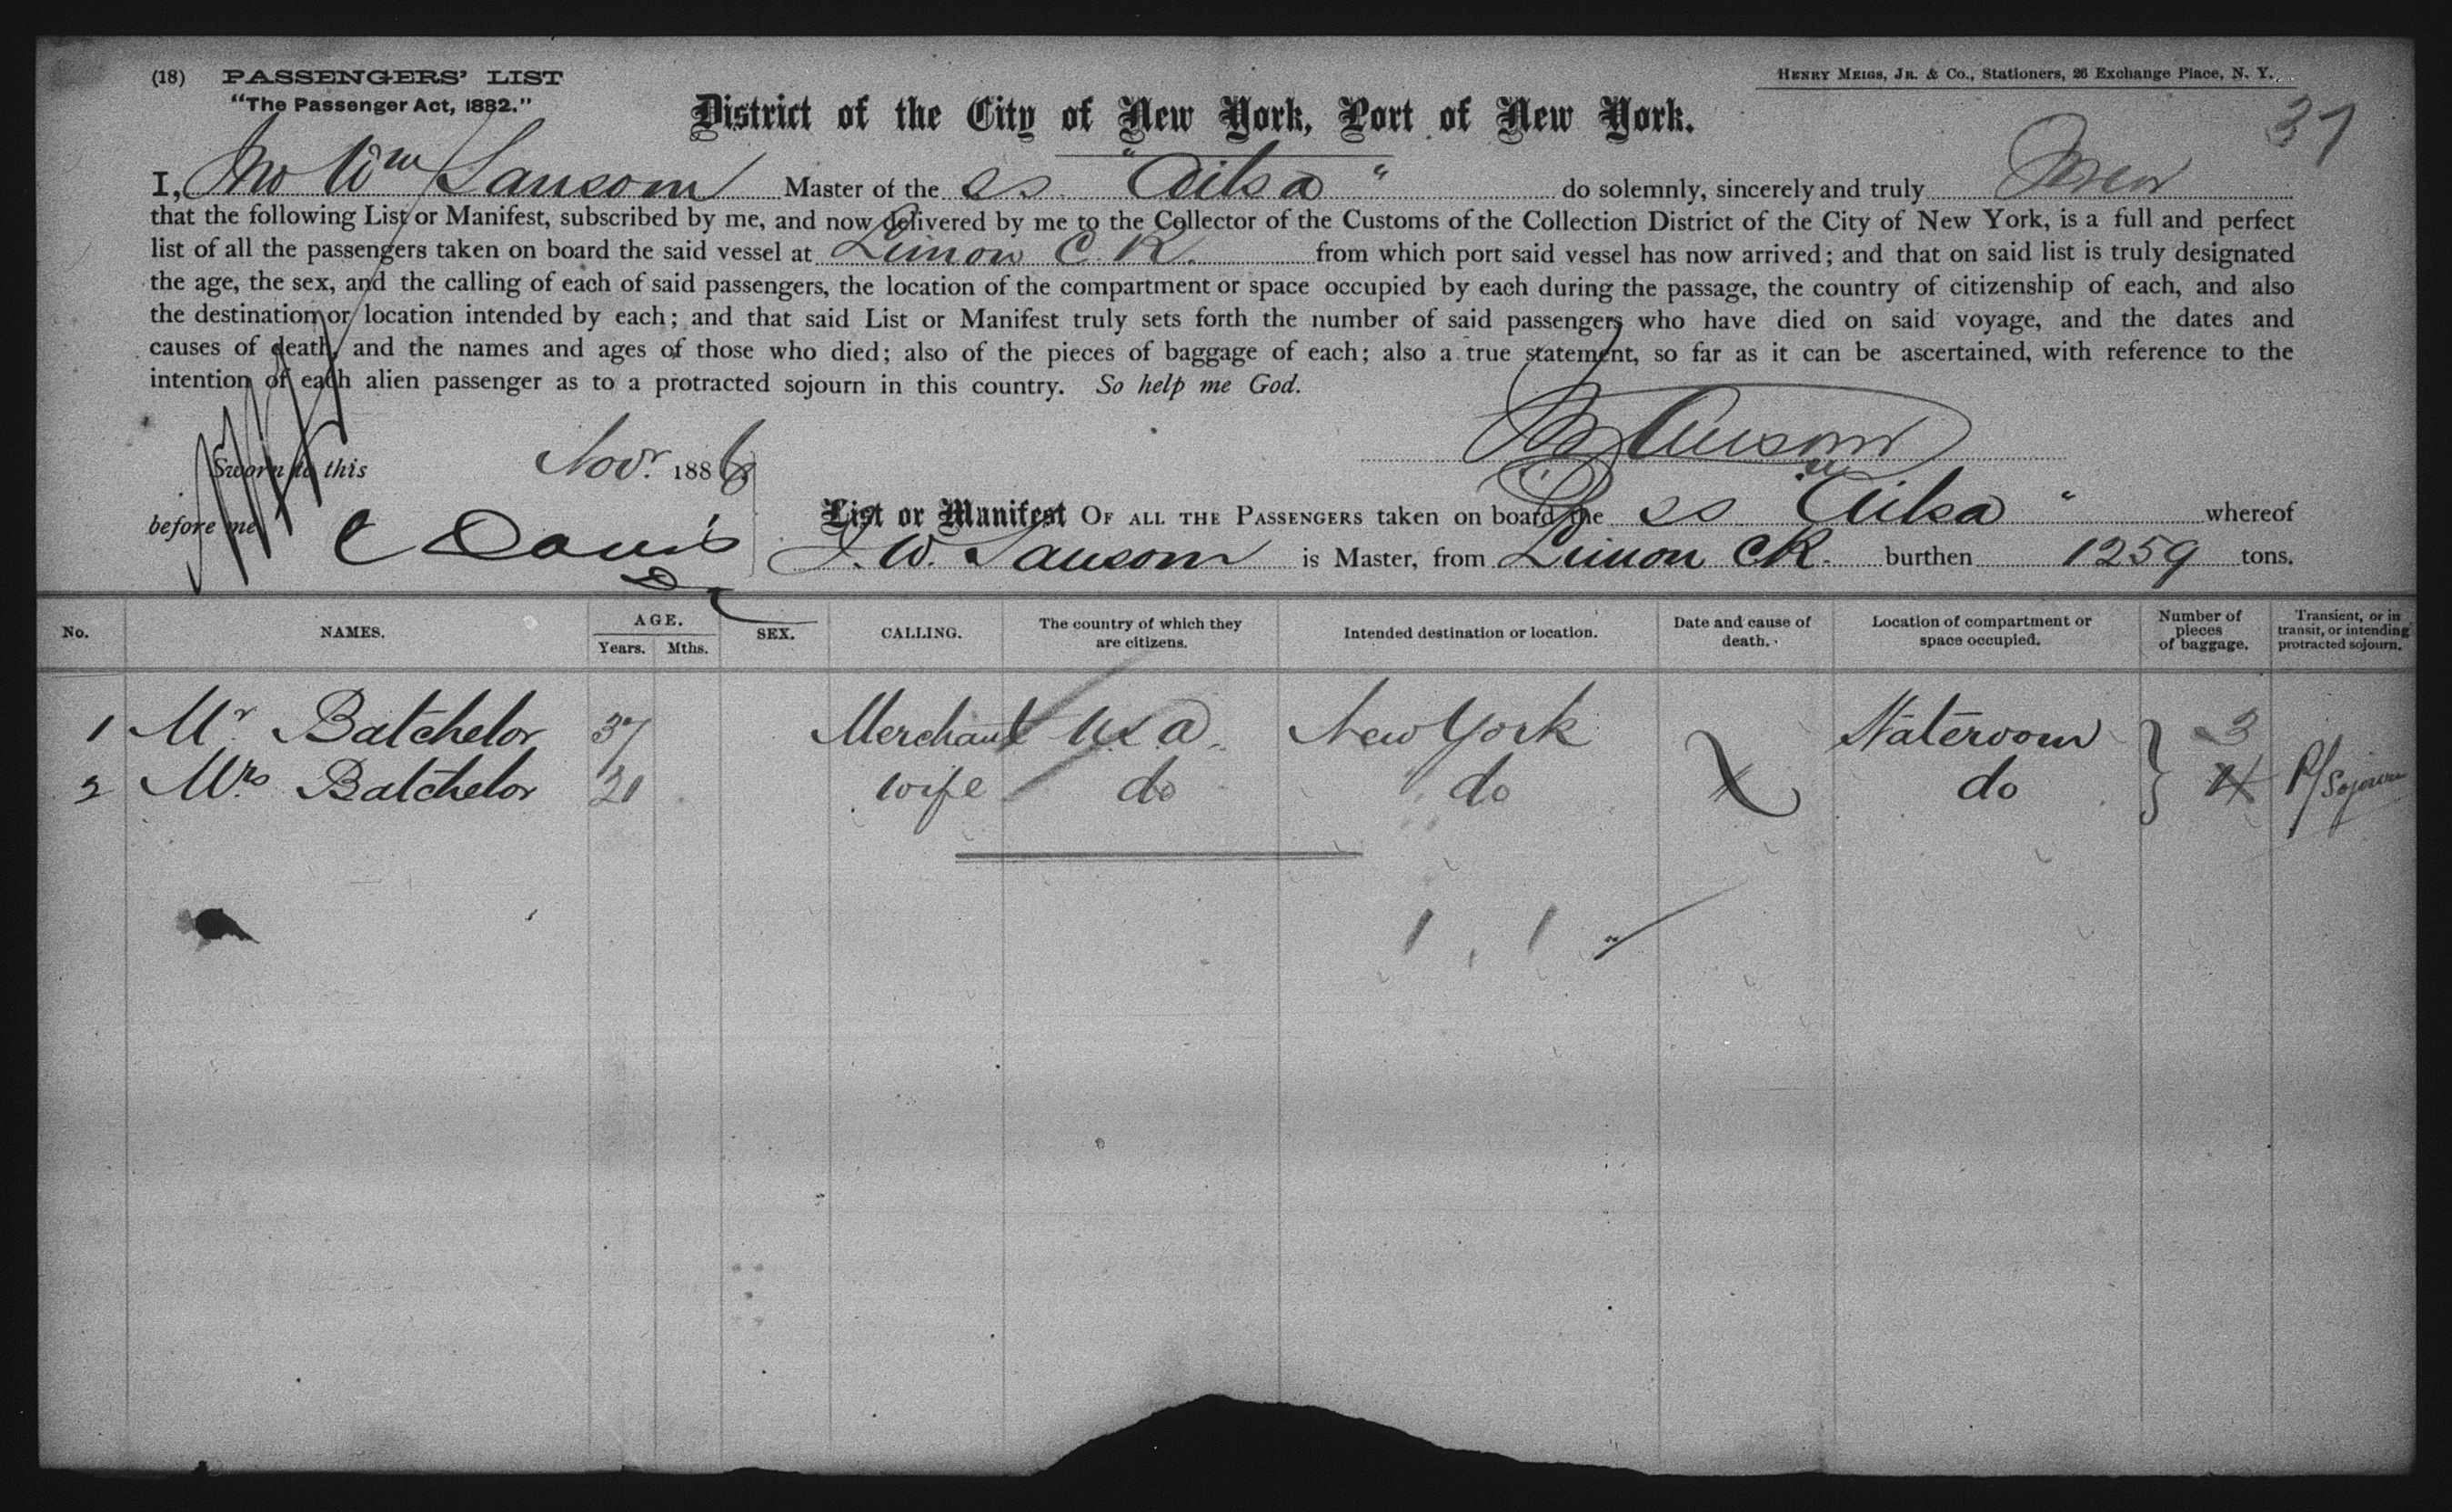 (18) PASSENGERS' LIST
HENRY MEIGS, JR. & CO., Stationers, 26 Exchange Place, N. Y.
"The Passenger Act, 1882."
District of the City of New York, Port of New York.
37
I, Jno Wm Sansom Master of the SS "Ailsa" do solemnly, sincerely and truly Swear
that the following List or Manifest, subscribed by me, and now delivered by me to the Collector of the Customs of the Collection District of the City of New York, is a full and perfect
list of all the passengers taken on board the said vessel at Limon C. R. from which port said vessel has now arrived; and that on said list is truly designated
the age, the sex, and the calling of each of said passengers, the location of the compartment or space occupied by each during the passage, the country of citizenship of each, and also
the destination or location intended by each; and that said List or Manifest truly sets forth the number of said passengers who have died on said voyage, and the dates and
causes of death, and the names and ages of those who died; also of the pieces of baggage of each; also a true statement, so far as it can be ascertained, with reference to the
intention of each alien passenger as to a protracted sojourn in this country. So help me God.
Sansom
Sworn to this Novr. 1886
before me C Davis
List or Manifest OF ALL THE PASSENGERS taken on board the SS "Ailsa" whereof
J. W. Sansom is Master, from Limon CR. burthen 1259 tons.
No. NAMES. AGE. Years. Mths. SEX. CALLING. The country of which they are citizens. Intended destination or location. Date and cause of death. Location of compartment or space occupied. Number of pieces of baggage. Transient, or in transit, or intending protracted sojourn.
1 Mr Batchelor 37 Merchant U.S.A. New York Stateroom 3
2 Mrs Batchelor do wife do do P/Sojourn
1 , 1